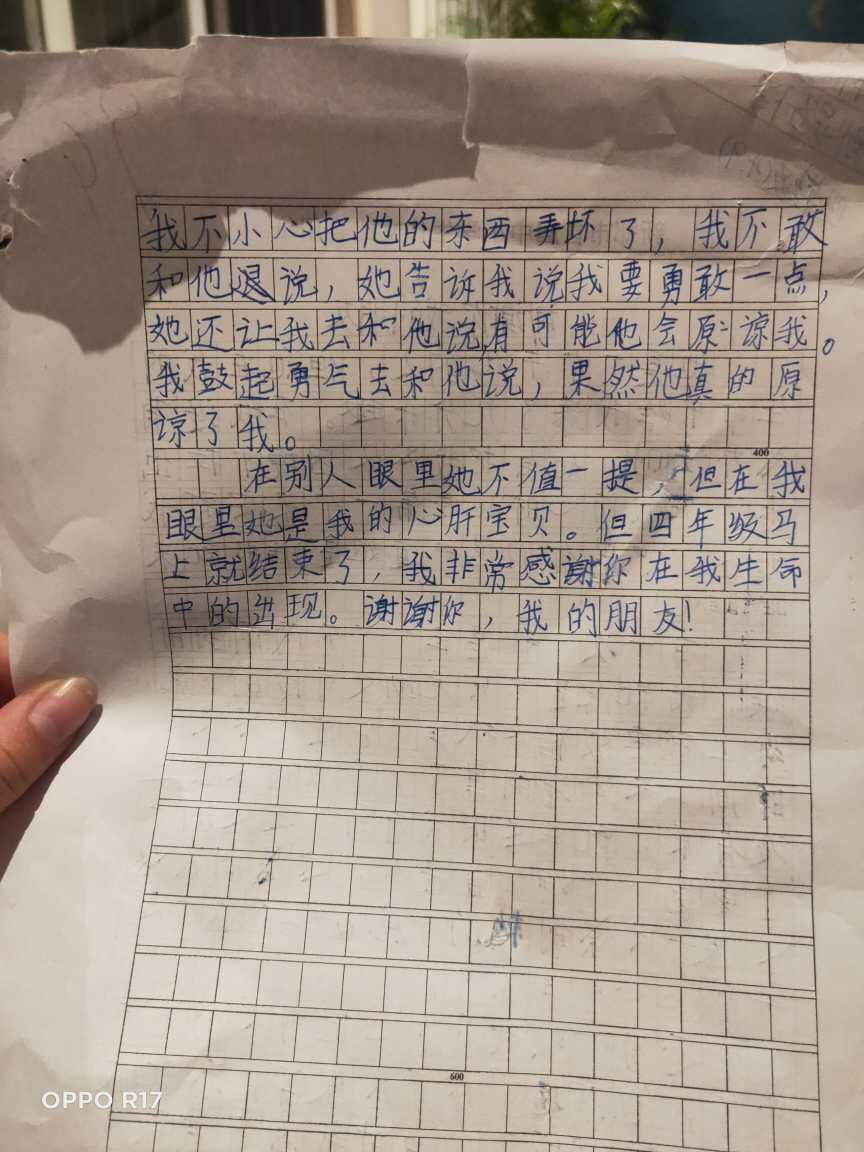 我不小心把他的东西弄坏了，我不敢
和他说，她告诉我说我要勇敢一点，
她还让我去和他说，有可能他会原谅我。
我鼓起勇气去和他说，果然他真的原
谅了我。
400
在别人眼里她不值一提，但在我
眼里她是我的心肝宝贝。但四年级马
上就结束了，我非常感谢你在我生命
中的出现。谢谢你，我的朋友！
600
OPPO R17